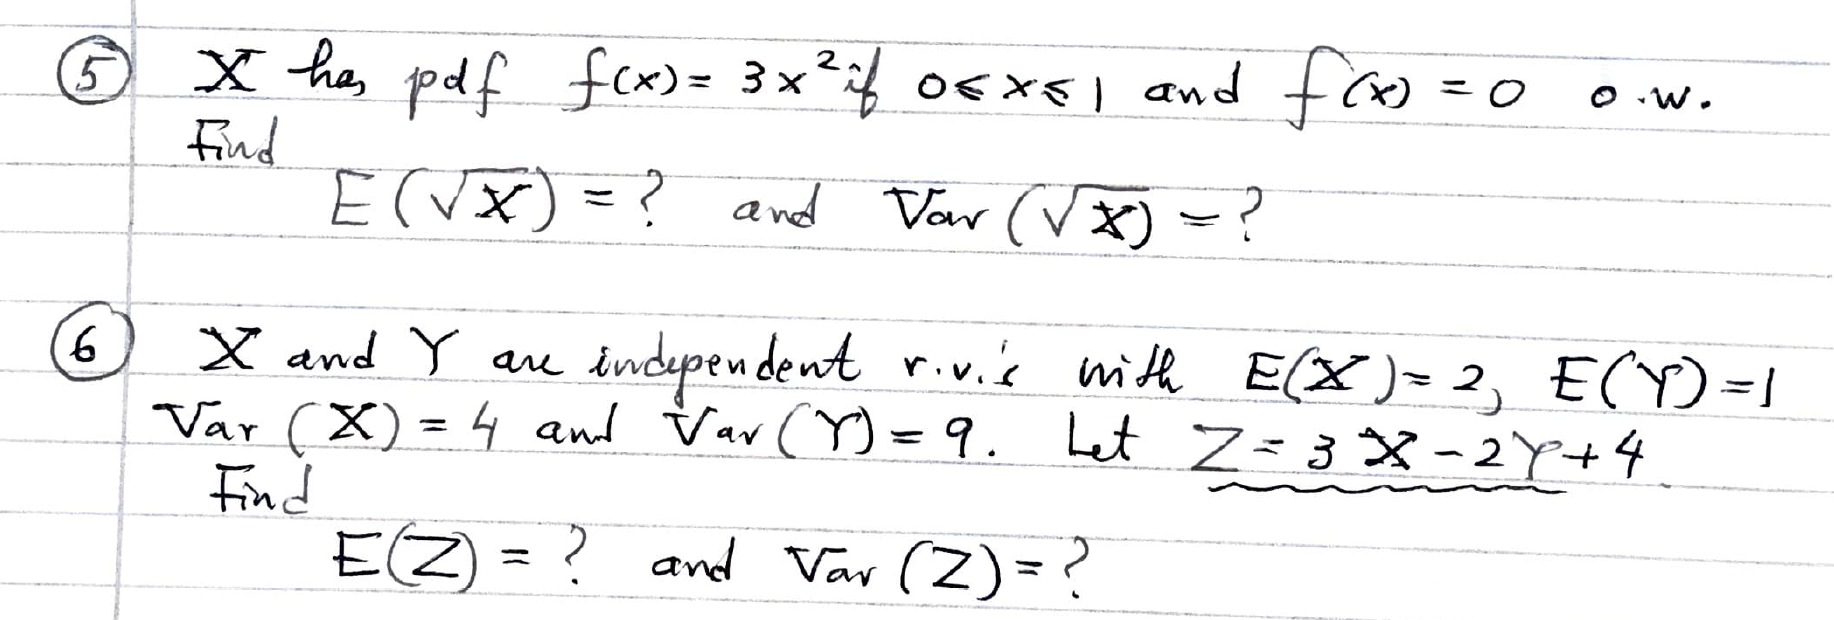 ⑤ X has pdf f(x) = 3x² if 0 ≤ x ≤ 1 and f(x) = 0 o.w.
Find
E(√X) = ? and Var(√X) = ?
⑥ X and Y are independent r.v.'s with E(X) = 2, E(Y) = 1
Var(X) = 4 and Var(Y) = 9. Let Z = 3X - 2Y + 4
Find
E(Z) = ? and Var(Z) = ?